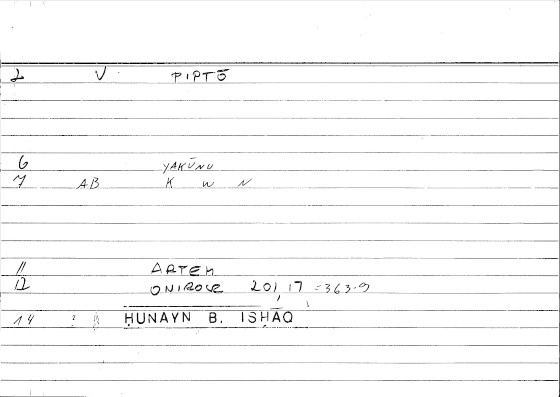 2 V PIPTŌ
6 YAKŪNU
7 AB K W N
11 ARTEM
12 ONIROCR 20,17 = 363.9
14 ḤUNAYN B. ISḤĀQ